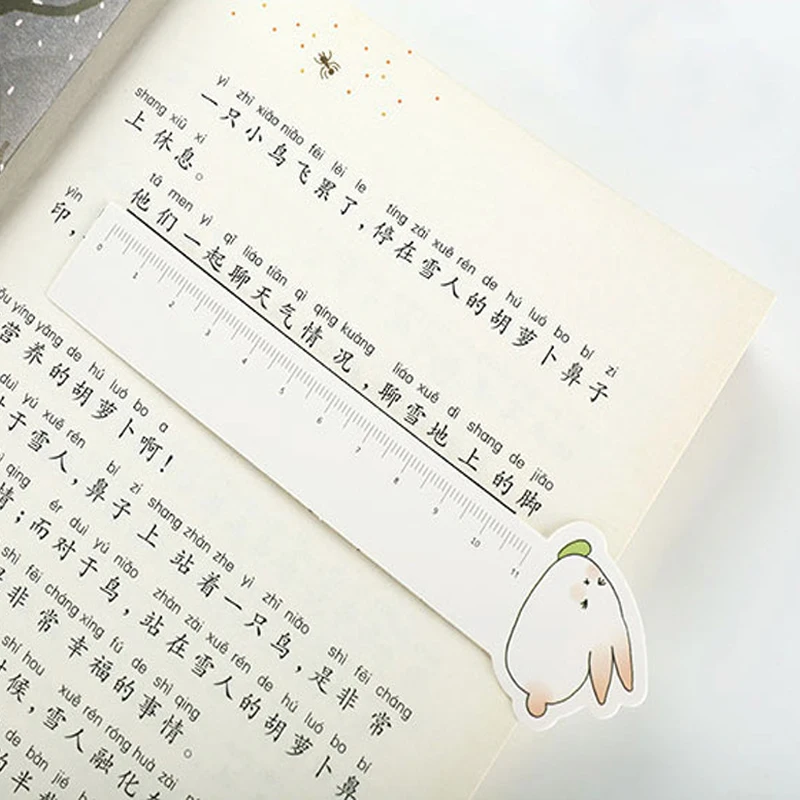 yì zhī xiǎo niǎo fēi lèi le tíng zài xuě rén de hú luó bo bí zi
一只小鸟飞累了，停在雪人的胡萝卜鼻子
shang xiū xi
上休息。
tā men yì qǐ liáo tiān qì qíng kuàng liáo xuě dì shang de jiǎo
他们一起聊天气情况，聊雪地上的脚
yìn
印，
yíng yǎng de hú luó bo a
营养的胡萝卜啊！
duì yú xuě rén bí zi shang zhàn zhe yì zhī niǎo shì fēi cháng
对于雪人，鼻子上站着一只鸟，是非常
qing ér duì yú niǎo zhàn zài xuě rén de hú luó bo bí
情；而对于鸟，站在雪人的胡萝卜鼻
shì fēi cháng xìng fú de shì qing
是非常幸福的事情。
shí hou xuě rén róng huà zài
时候，雪人融化在
de bàn jié
的半
0 1 2 3 4 5 6 7 8 9 10 11